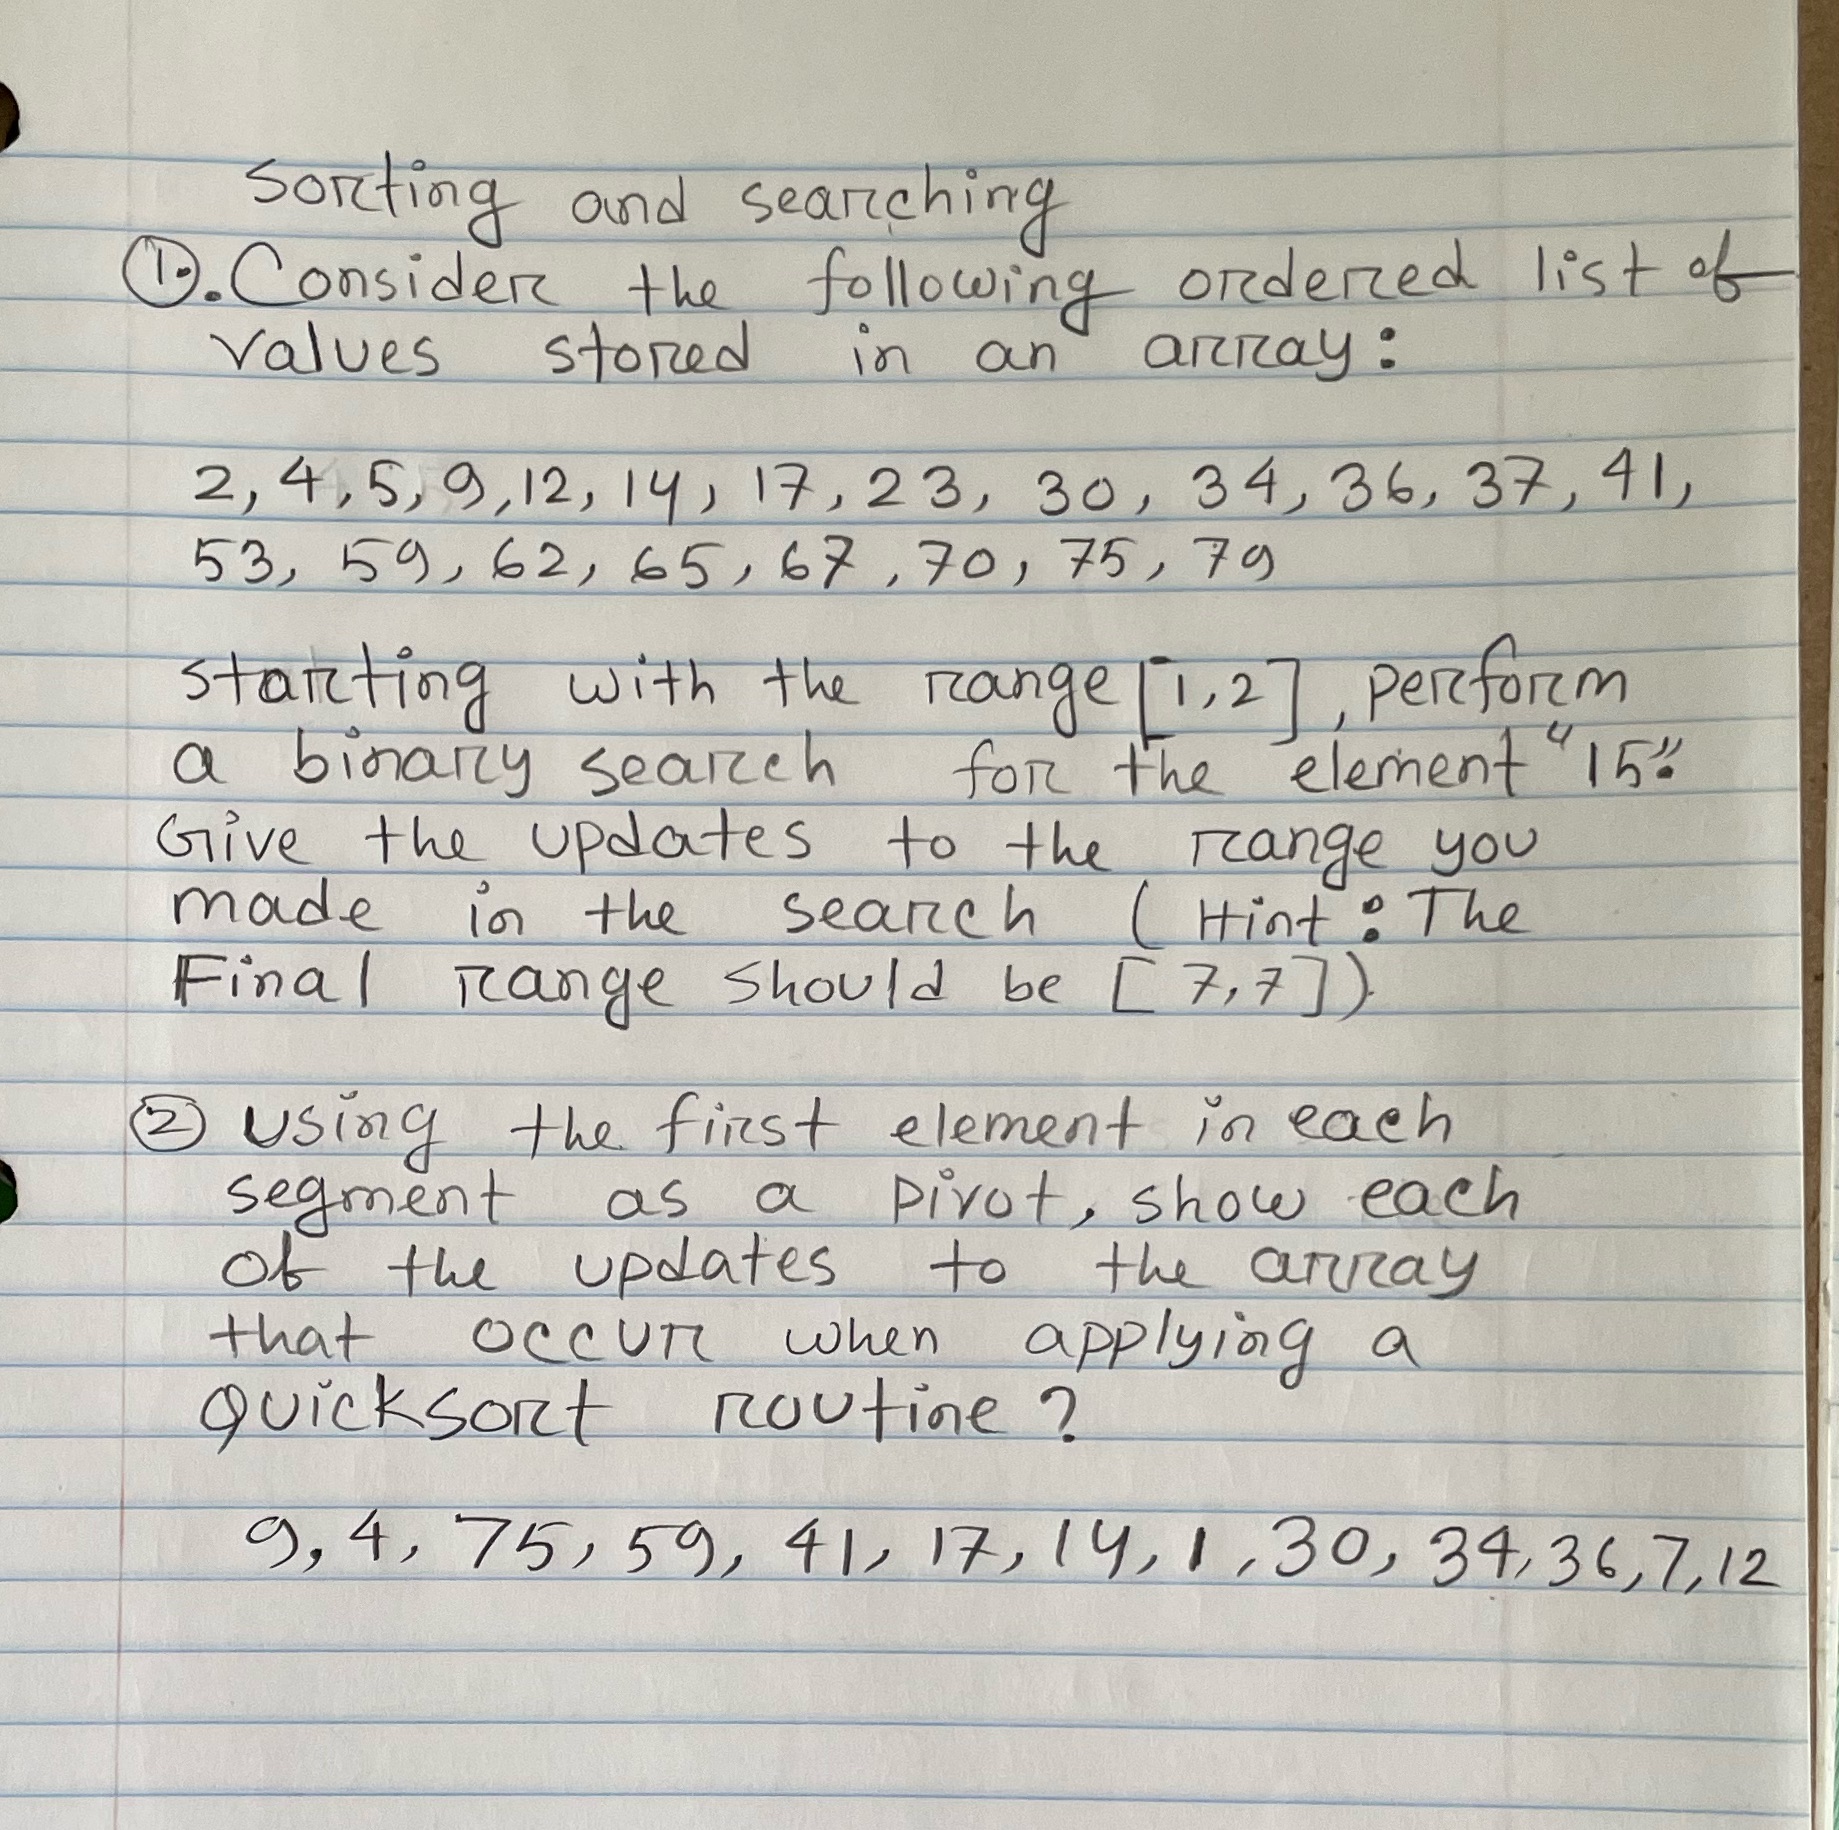 Sorting and searching
①. Consider the following ordered list of
values stored in an array:
2, 4, 5, 9, 12, 14, 17, 23, 30, 34, 36, 37, 41,
53, 59, 62, 65, 67, 70, 75, 79
starting with the range [1,2], perform
a binary search for the element "15".
Give the updates to the range you
made in the search (Hint: The
Final range should be [7,7])
② Using the first element in each
segment as a pivot, show each
of the updates to the array
that occur when applying a
Quicksort routine?
9, 4, 75, 59, 41, 17, 14, 1, 30, 34, 36, 7, 12